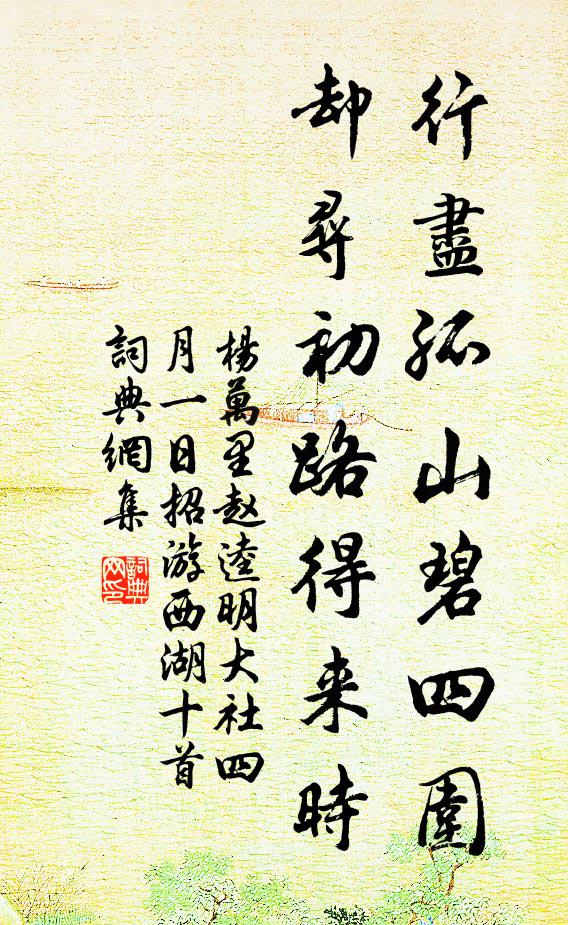 行盡孤山碧四圍
却尋初路得来時
楊萬里赵逵明大社四
月一日招游西湖十首
詞典網集
詞典
网印